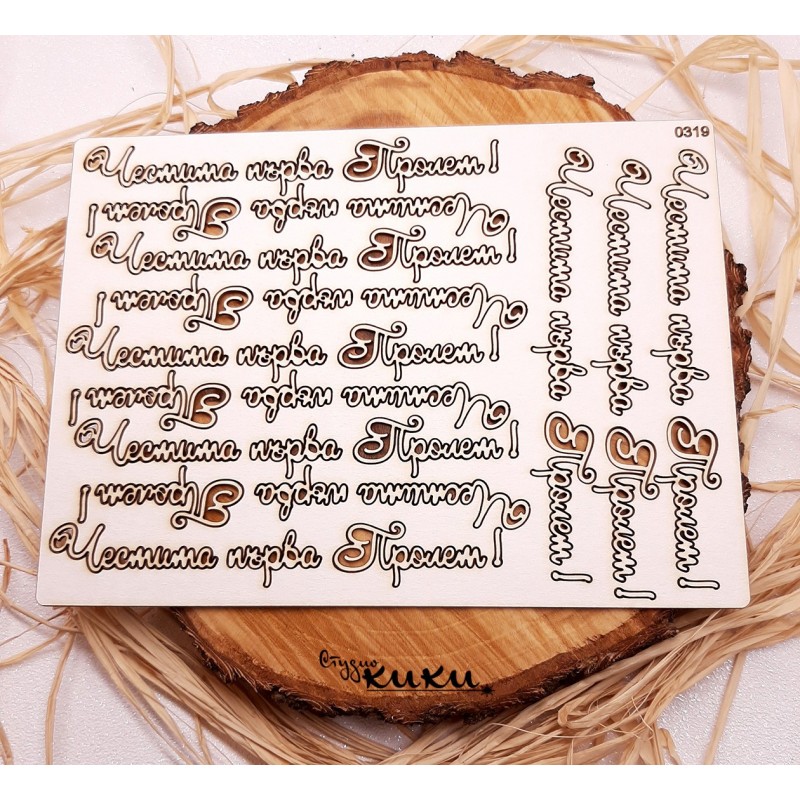 0319
Честита първа Пролет!
Честита първа Пролет!
Честита първа Пролет!
Честита първа Пролет!
Честита първа Пролет!
Честита първа Пролет!
Честита първа Пролет!
Честита първа Пролет!
Честита първа Пролет!
Честита първа Пролет!
Честита първа Пролет!
Честита първа Пролет!
Студио
КИКИ